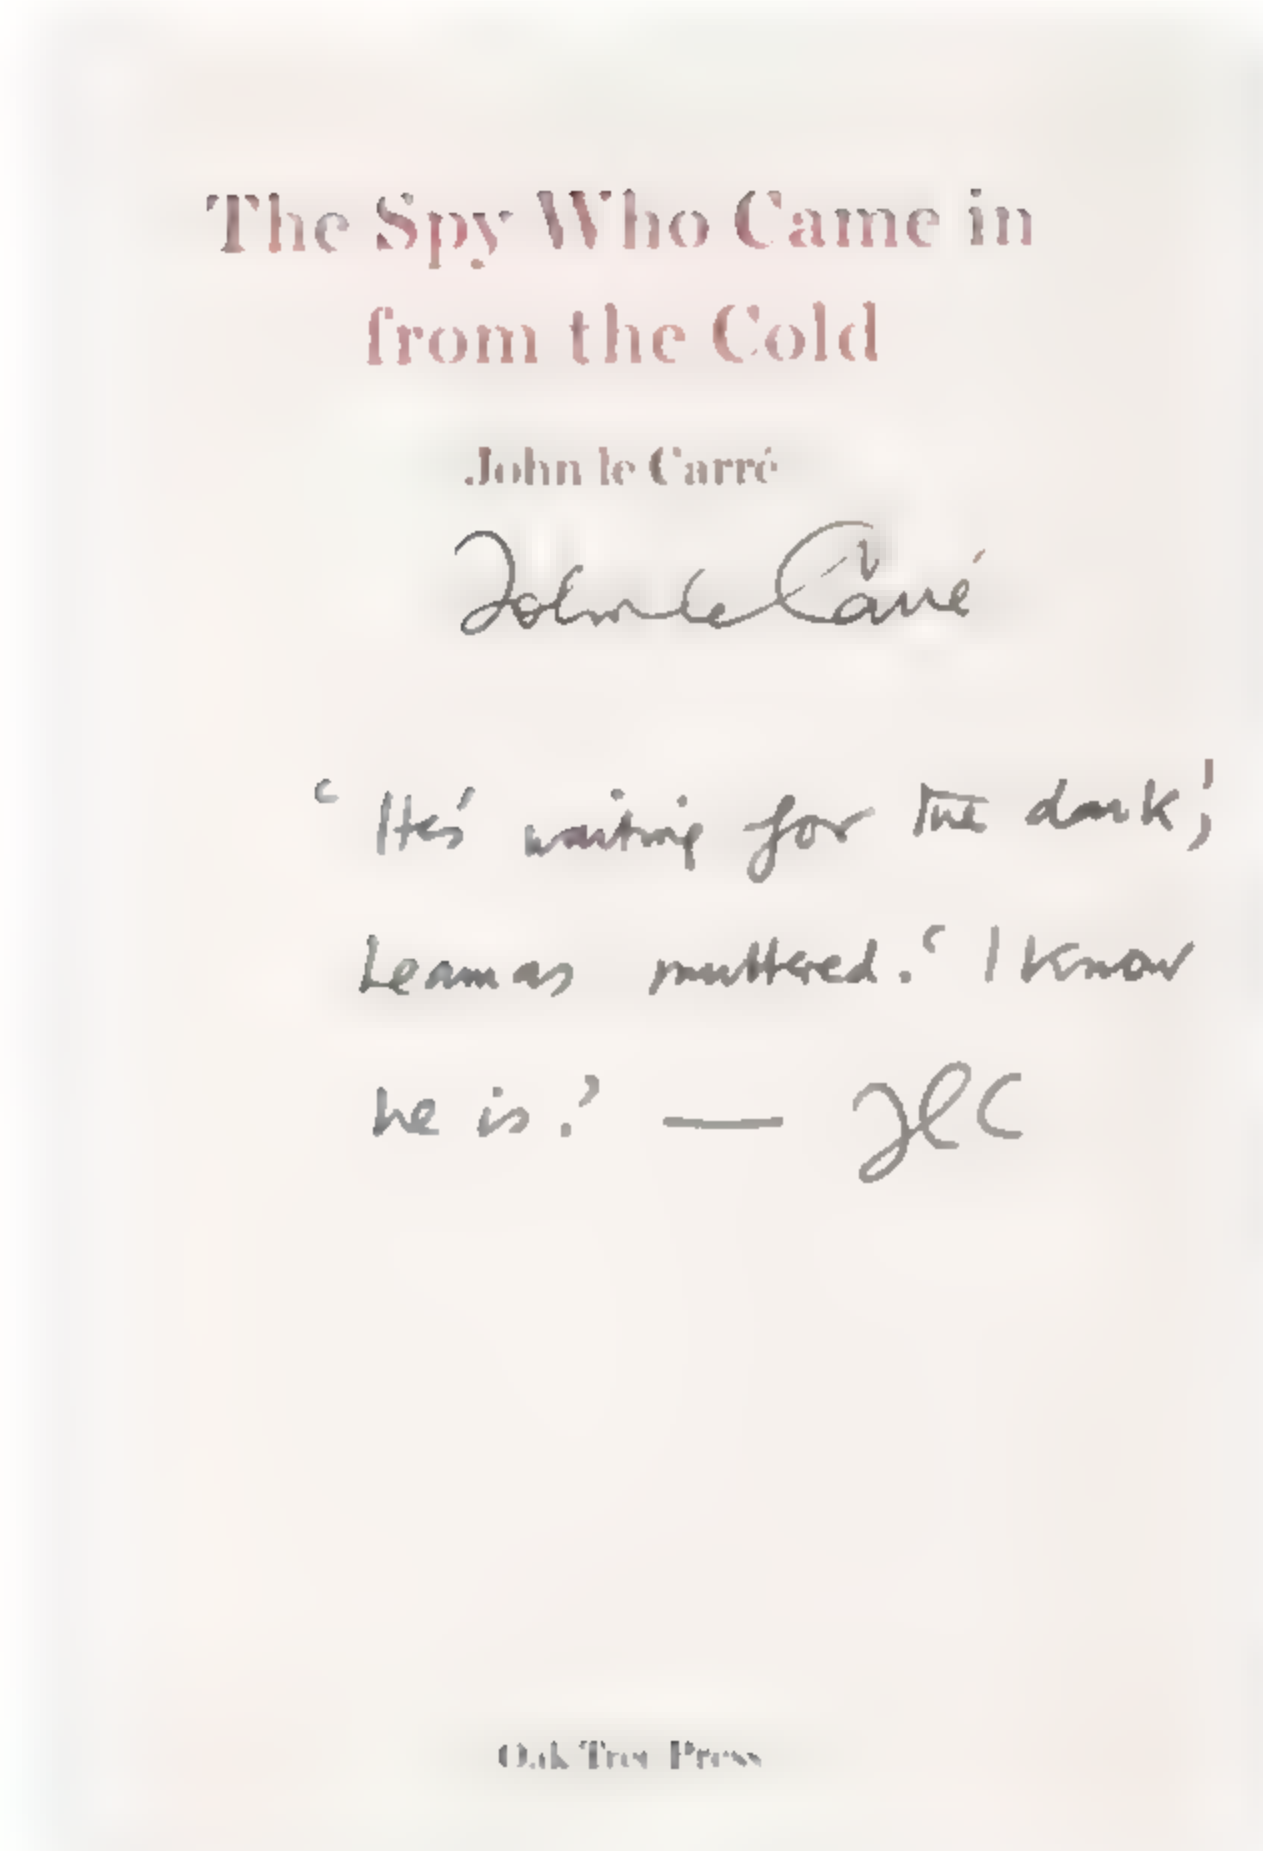 The Spy Who Came in
from the Cold
John le Carré
John le Carré
‘He's waiting for the dark,’
Leamas muttered. ‘I know
he is.’ — JlC
Oak Tree Press